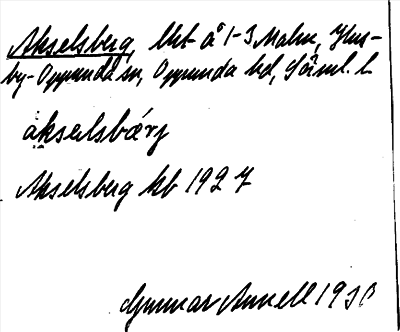 Akselsberg, lht å 1-3 Malm, Hus-
by-Oppunda sn, Oppunda hd, Sörml. l.
àksəlsbærj
Akselsberg kb 1927
Gunnar Annell 1930